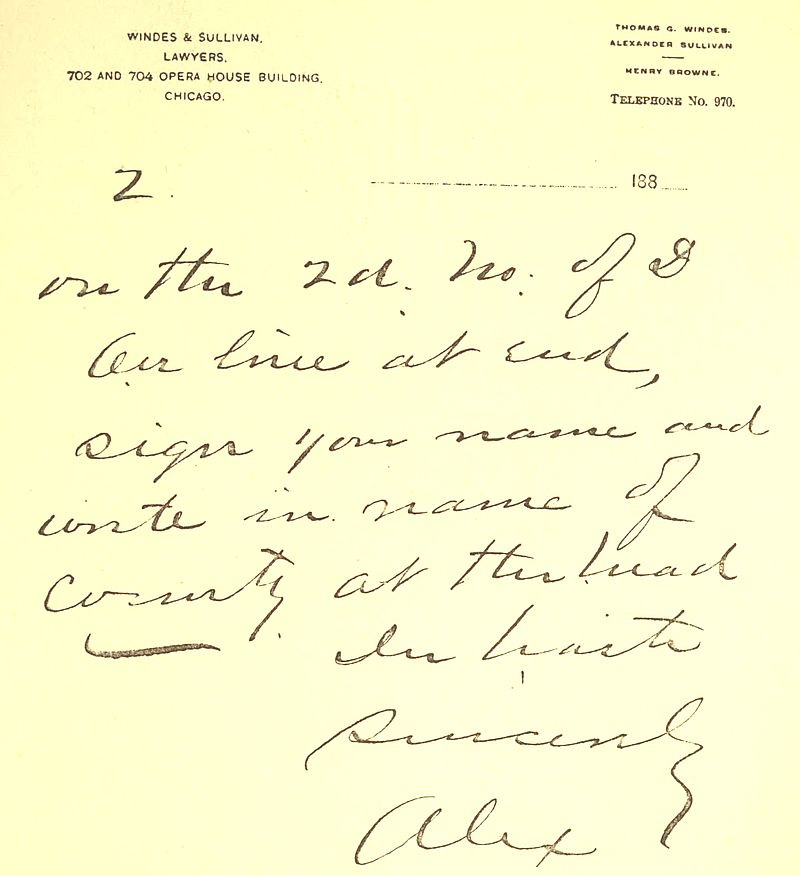 WINDES & SULLIVAN,
LAWYERS,
702 AND 704 OPERA HOUSE BUILDING,
CHICAGO.
THOMAS G. WINDES.
ALEXANDER SULLIVAN
HENRY BROWNE.
TELEPHONE No. 970.
2.
188
on the 2d. No. of D
On line at end,
sign your name and
write in name of
County at the head
In haste
Sincerely
Alex